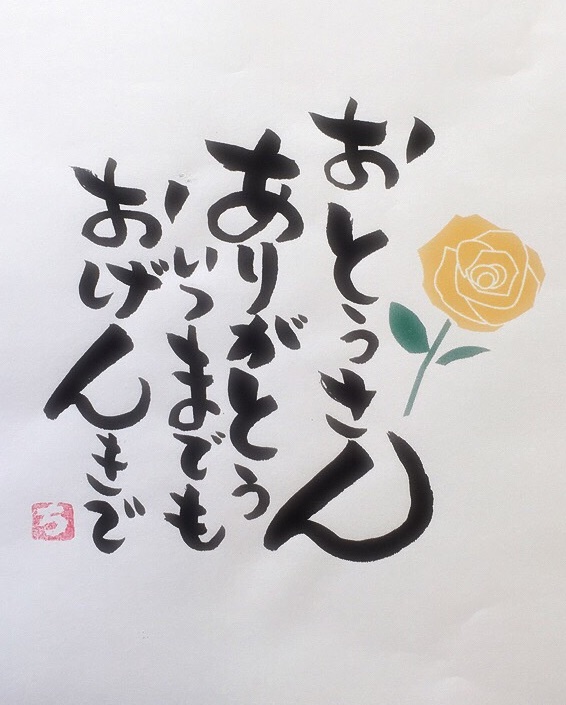 おとうさん
ありがとう
いつまでも
おげんきで
ち